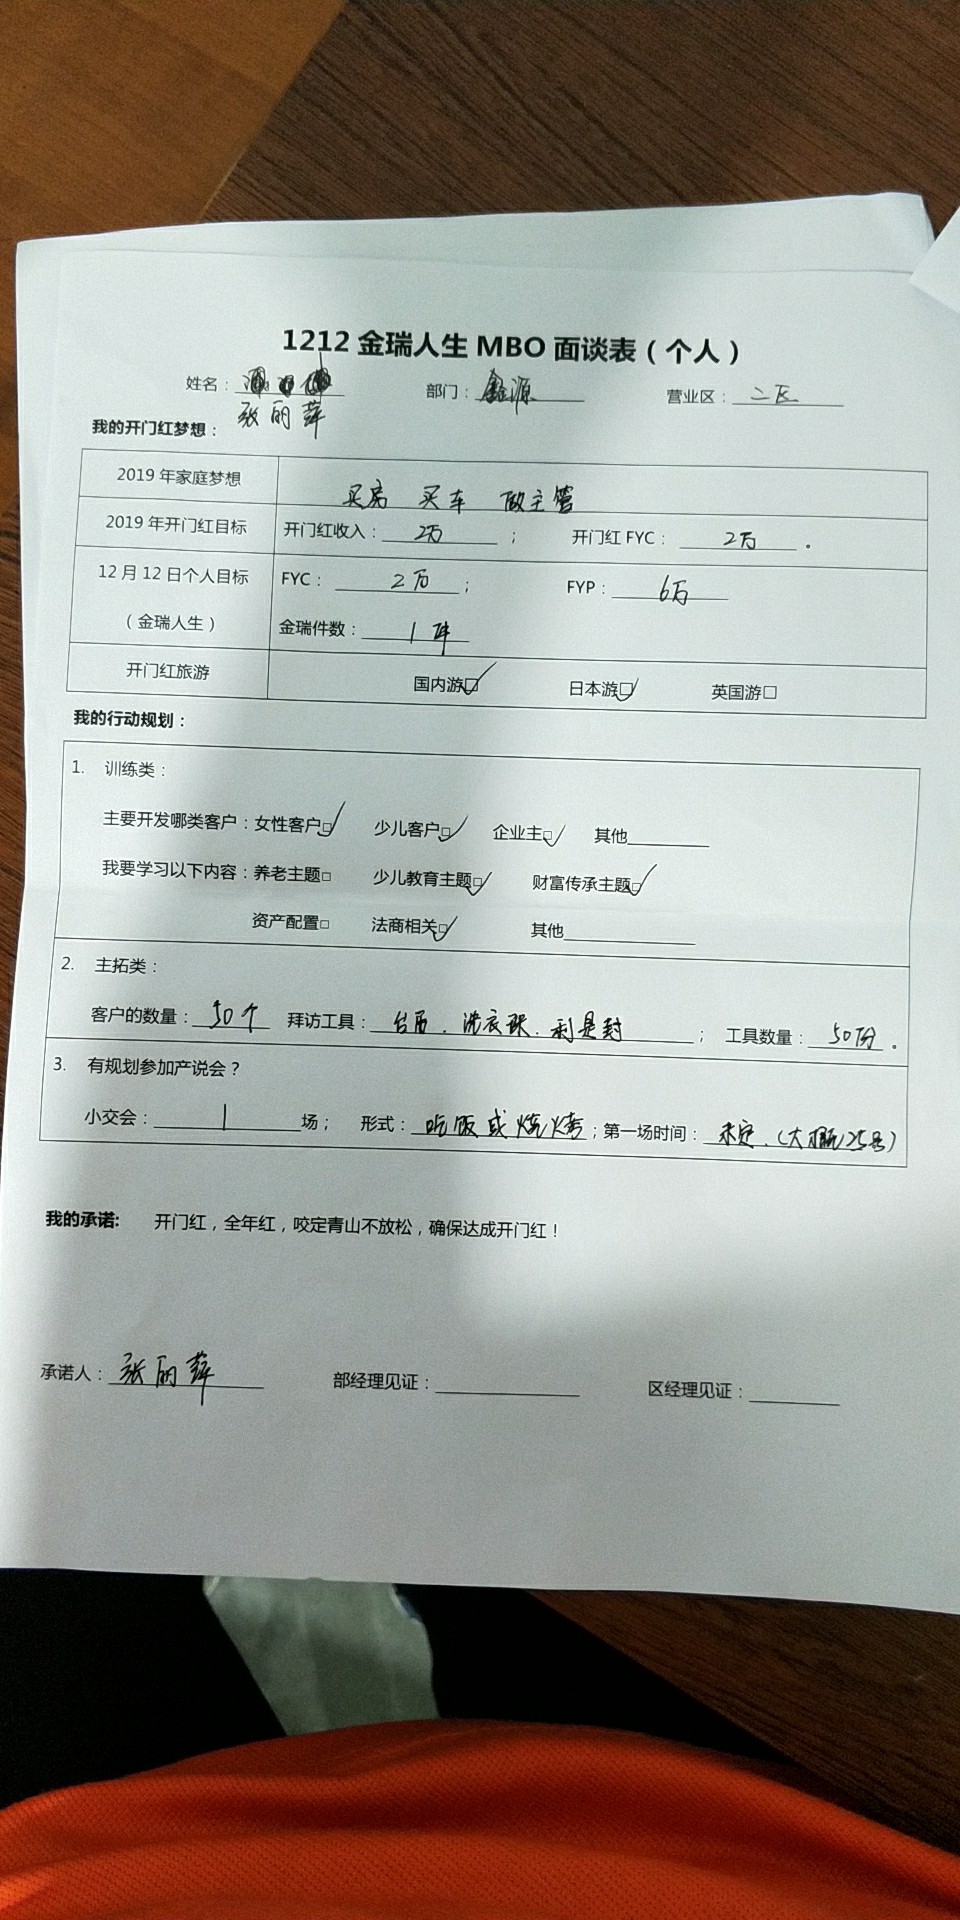 1212金瑞人生MBO面谈表（个人）
姓名： 部门：鑫源 营业区：二区
张丽萍
我的开门红梦想：
2019年家庭梦想 买房 买车 做主管
2019年开门红目标 开门红收入：2万； 开门红FYC：2万。
12月12日个人目标 FYC：2万； FYP：6万
（金瑞人生） 金瑞件数：1件
开门红旅游 国内游☑ 日本游☑ 英国游□
我的行动规划：
1. 训练类：
主要开发哪类客户：女性客户☑ 少儿客户☑ 企业主☑ 其他
我要学习以下内容：养老主题□ 少儿教育主题☑ 财富传承主题☑
资产配置□ 法商相关☑ 其他
2. 主拓类：
客户的数量：50个 拜访工具：台历、洗衣球、利是封； 工具数量：50份。
3. 有规划参加产说会？
小交会：1场； 形式：吃饭或烧烤；第一场时间：未定、（大概25号）
我的承诺: 开门红，全年红，咬定青山不放松，确保达成开门红！
承诺人：张丽萍 部经理见证： 区经理见证：